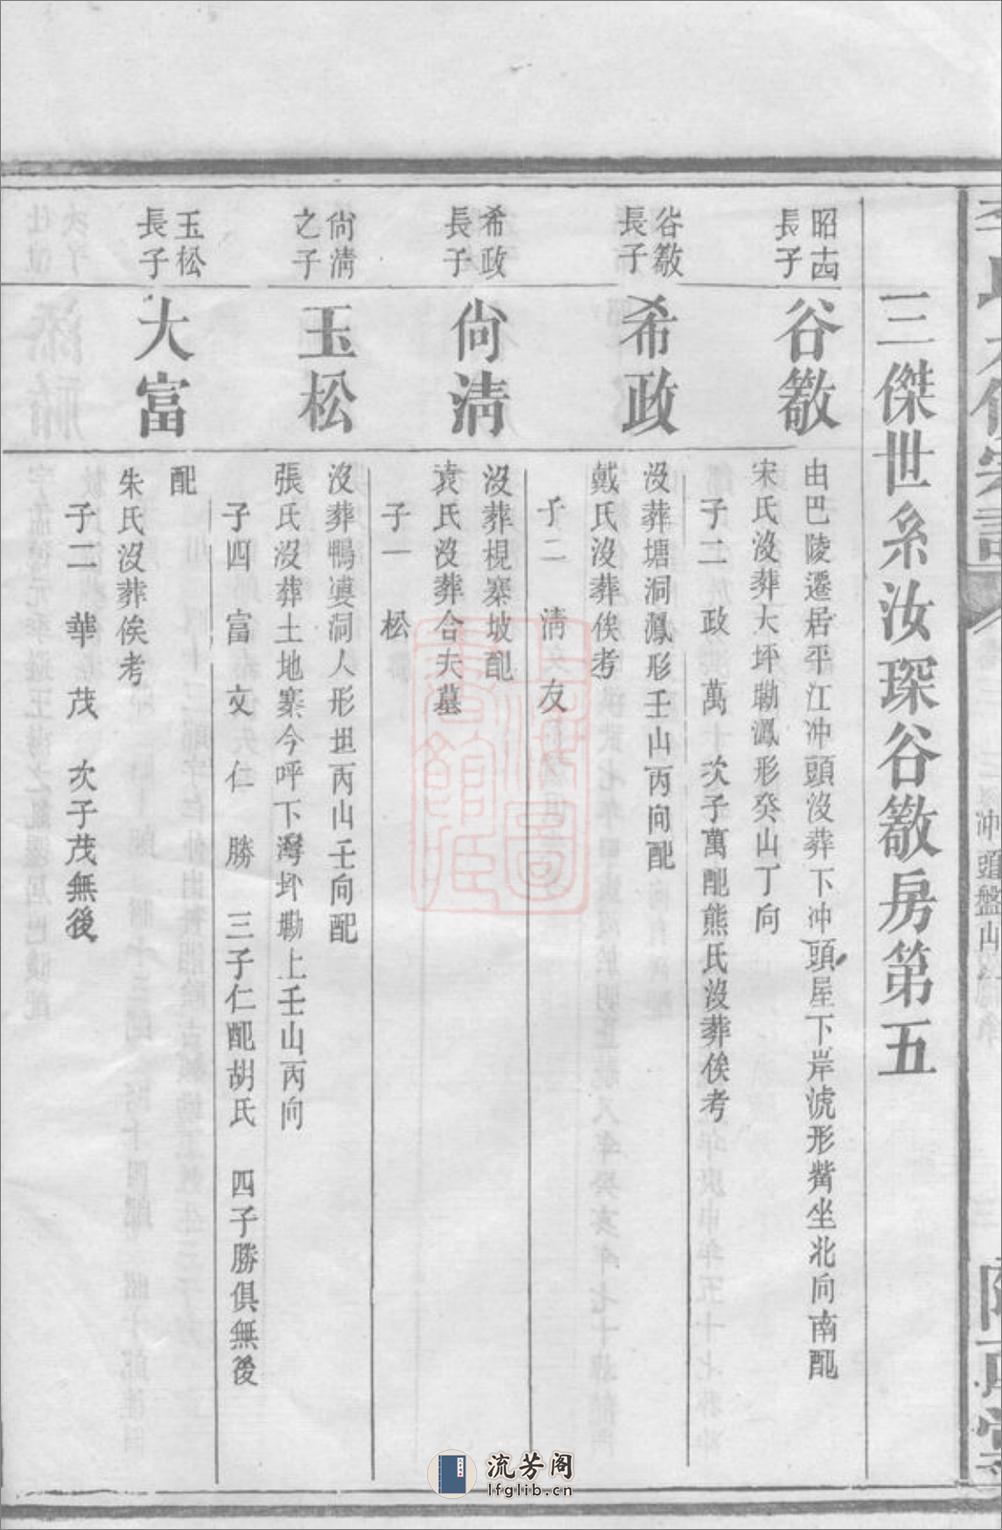 冲頭盤山
三傑世系汝琛谷歡房第五
昭古
長子
谷歡
由巴陵遷居平江冲頭沒葬下冲頭屋下岸虎形觜坐北向南配
宋氏沒葬大坪坳鳳形癸山丁向
子二 政 萬 次子萬配熊氏沒葬俟考
谷歡
長子
希政
沒葬塘洞鳳形壬山丙向配
戴氏沒葬俟考
子二 清 友
希政
長子
尙清
沒葬梘寨坡配
袁氏沒葬合夫墓
子一 松
尙清
之子
玉松
沒葬鴨婆洞人形坦丙山壬向配
張氏沒葬土地寨今呼下灣卦坳上壬山丙向
子四 富 文 仁 勝 三子仁配胡氏 四子勝俱無後
玉松
長子
大富
配
朱氏沒葬俟考
子二 華 茂 次子茂無後
流芳阁
lfglib.cn